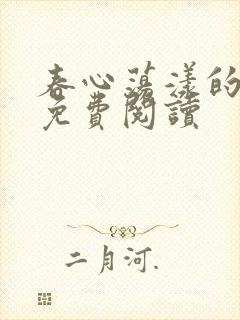 春心荡漾的
免費閱讀
二月河.